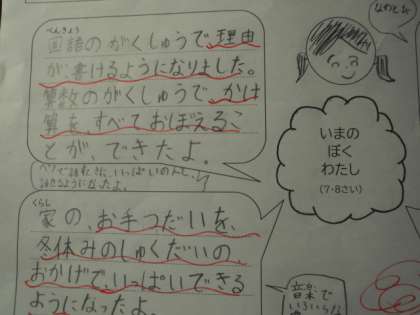 べんきょう
国語のがくしゅうで、理由
が、書けるようになりました。
算数のがくしゅうで、かけ
算を、すべておぼえるこ
とが、できたよ。
いっぱいの人と、
話せるようになったよ。
くらし
家の、お手つだいを、
冬休みのしゅくだいの
おかげで、いっぱいできる
ようになったよ。
なわとび
いまの
ぼく
わたし
(7・8さい)
音楽で
いろいろな